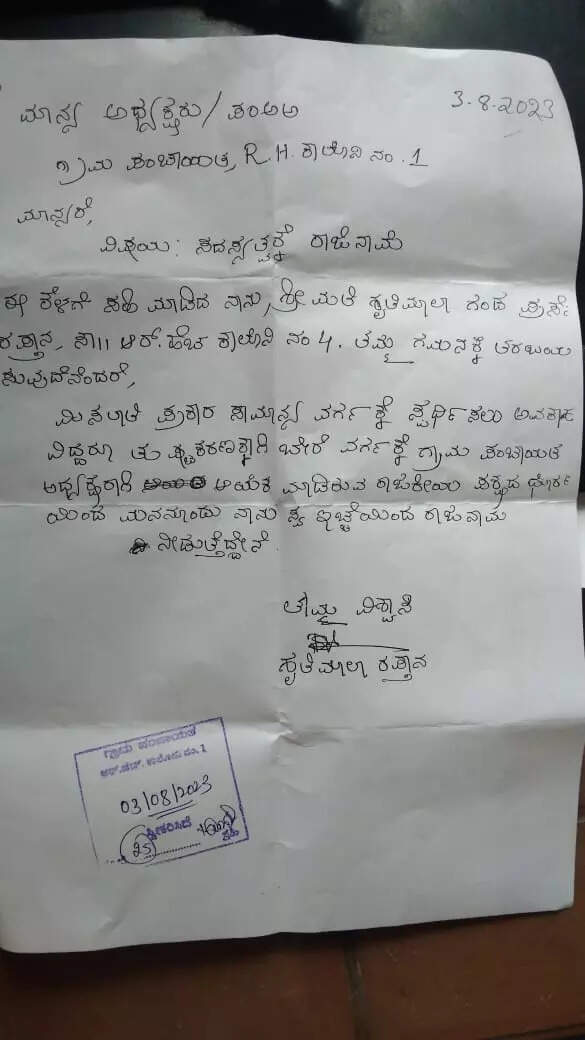 3-8-2023
ಮಾನ್ಯ ಅಧ್ಯಕ್ಷರು/ ಪಂಅಅ
ಗ್ರಾಮ ಪಂಚಾಯತ, R.H. ಕಾಲೋನಿ ನಂ.1
ಮಾನ್ಯರೆ,
ವಿಷಯ: ಸದಸ್ಯತ್ವಕ್ಕೆ ರಾಜಿನಾಮೆ
ಈ ಕೆಳಗೆ ಸಹಿ ಮಾಡಿದ ನಾನು, ಶ್ರೀಮತಿ ಸ್ಮೃತಿಮಾಲಾ ಗಂಡ
ಸಾ|| ಆರ್.ಹೆಚ ಕಾಲೋನಿ ನಂ 4. ತಮ್ಮ ಗಮನಕ್ಕೆ ತರಬಯ
ಸುವುದೆನೆಂದರೆ,
ಮಿಸಲಾತಿ ಪ್ರಕಾರ ಸಾಮಾನ್ಯ ವರ್ಗಕ್ಕೆ ಸ್ಪರ್ಧಿಸಲು ಅವಕಾಶ
ವಿದ್ದರೂ ತುಷ್ಟೀಕರಣಕ್ಕಾಗಿ ಬೇರೆ ವರ್ಗಕ್ಕೆ ಗ್ರಾಮ ಪಂಚಾಯತ
ಅಧ್ಯಕ್ಷರಾಗಿ ಆಯಕೆ ಮಾಡಿರುವ ರಾಜಕೀಯ ಪಕ್ಷದ ಧೋರಣೆ
ಯಿಂದ ಮನನೊಂದು ನಾನು ಸ್ವ ಇಚ್ಛೆಯಿಂದ ರಾಜಿನಾಮೆ
ನೀಡುತ್ತಿದ್ದೇನೆ.
ತಮ್ಮ ವಿಶ್ವಾಸಿ
ಗ್ರಾಮ ಪಂಚಾಯತ
ಆರ್.ಹೆಚ್. ಕಾಲೋನಿ ನಂ. 1
03/08/2023
ಸ್ವೀಕರಿಸಿದೆ
25
ಸಹಿ